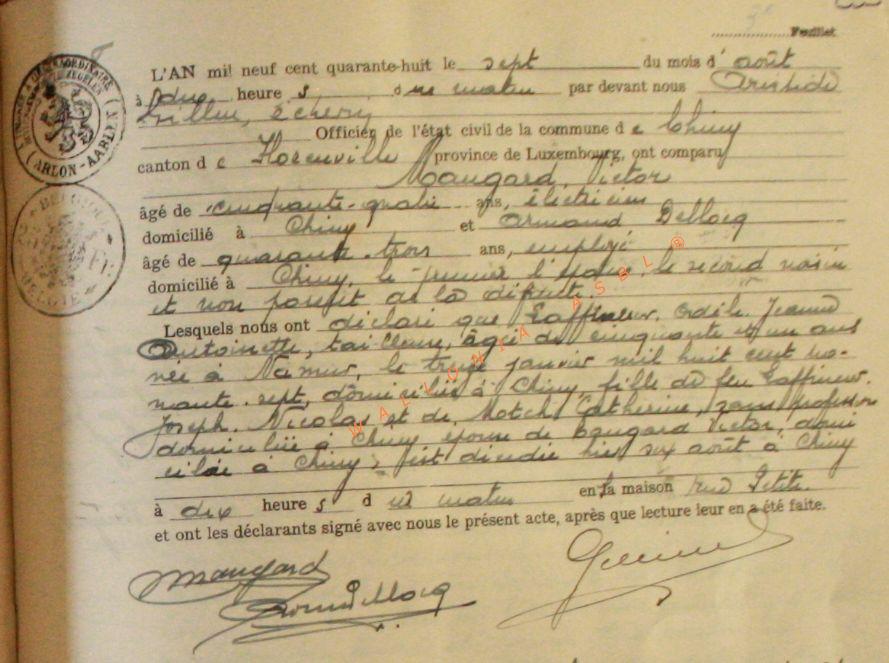 3e Feuillet
L'AN mil neuf cent quarante-huit le sept du mois d'août
à dix heure s du matin par devant nous Aristide
échevin
Officier de l'état civil de la commune de Chiny
canton de Florenville province de Luxembourg, ont comparu
Maugard, Victor
âgé de cinquante-quatre ans, électricien
domicilié à Chiny et Armand Dellocq
âgé de quarante-trois ans, employé
domicilié à Chiny, le premier l'époux le second voisin
et non parent de la défunte.
Lesquels nous ont déclaré que Laffineur, Odile, Jeanne
Antoinette, tailleuse, âgée de cinquante et un ans
née à Namur, le treize janvier mil huit cent no-
nante-sept, domiciliée à Chiny, fille de feu Laffineur
Joseph, Nicolas et de Catherine, sans profession
domiciliée à Chiny épouse de Maugard Victor, domi
cilié à Chiny, est décédée hier six août à Chiny
à dix heure s du matin en la maison rue Petite.
et ont les déclarants signé avec nous le présent acte, après que lecture leur en a été faite.
Maugard
Dellocq
ARLON-AARLEN
BELGIQUE
BELGIË
2 Fr
WALLONIA ASBL ®